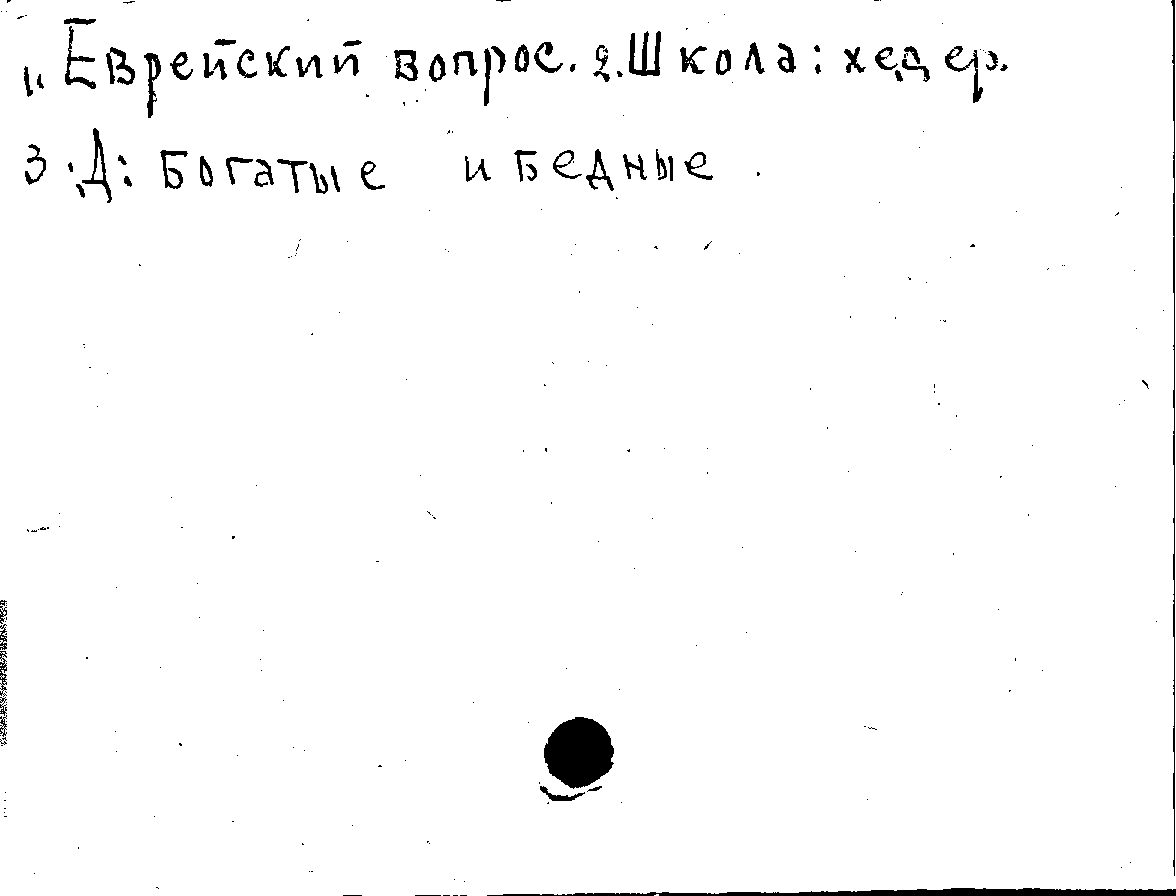 1. Еврейский вопрос. 2. Школа: хедер.
3. Д: Богатые и бедные.